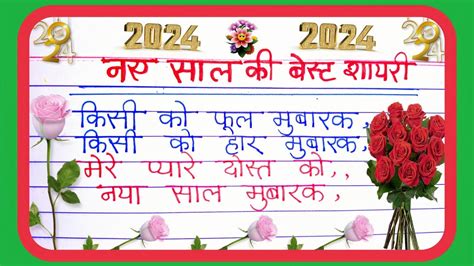 2024 2024
2024 2024
नए साल की बेस्ट शायरी
किसी को फूल मुबारक,
किसी को हार मुबारक,
मेरे प्यारे दोस्त को,,
नया साल मुबारक,